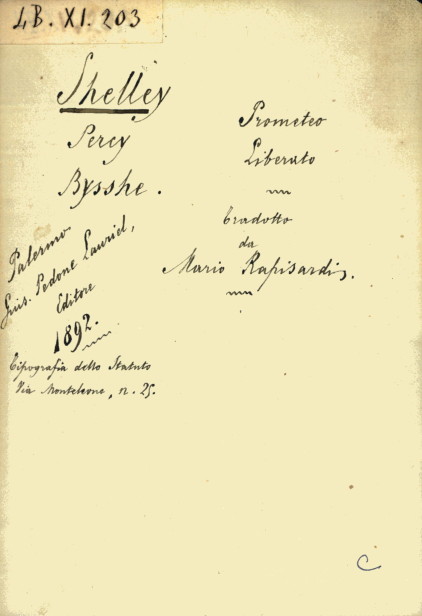 LB. XI. 203
Shelley
Percy
Bysshe.
Prometeo
Liberato
tradotto
da
Mario Rapisardi.
Palermo
Gius. Pedone Lauriel,
Editore
1892.
Tipografia dello Statuto
Via Monteleone, n. 25.
C